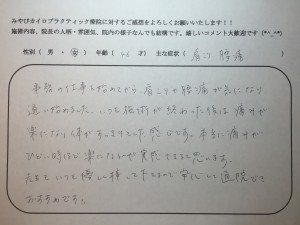 みやびカイロプラクティック療院に対するご感想をよろしくお願いいたします!!
施術内容、院長の人柄・雰囲気、院内の様子なんでも結構です。嬉しいコメント大歓迎です (*^_^*)
性別( 男 ・ 女 ) 年齢( 4 才) 主な症状( 肩こり 腰痛 )
事務の仕事を始めてから 肩こりや腰痛が気になり
通い始めました。いつも施術が終わった後は 痛みが
楽になり体がすっきりとした感じです。本当に痛みが
ひどい時ほど 楽になるのが実感できると思います。
先生も いつも優しく接して下さるので 安心して通院できて
おすすめです。